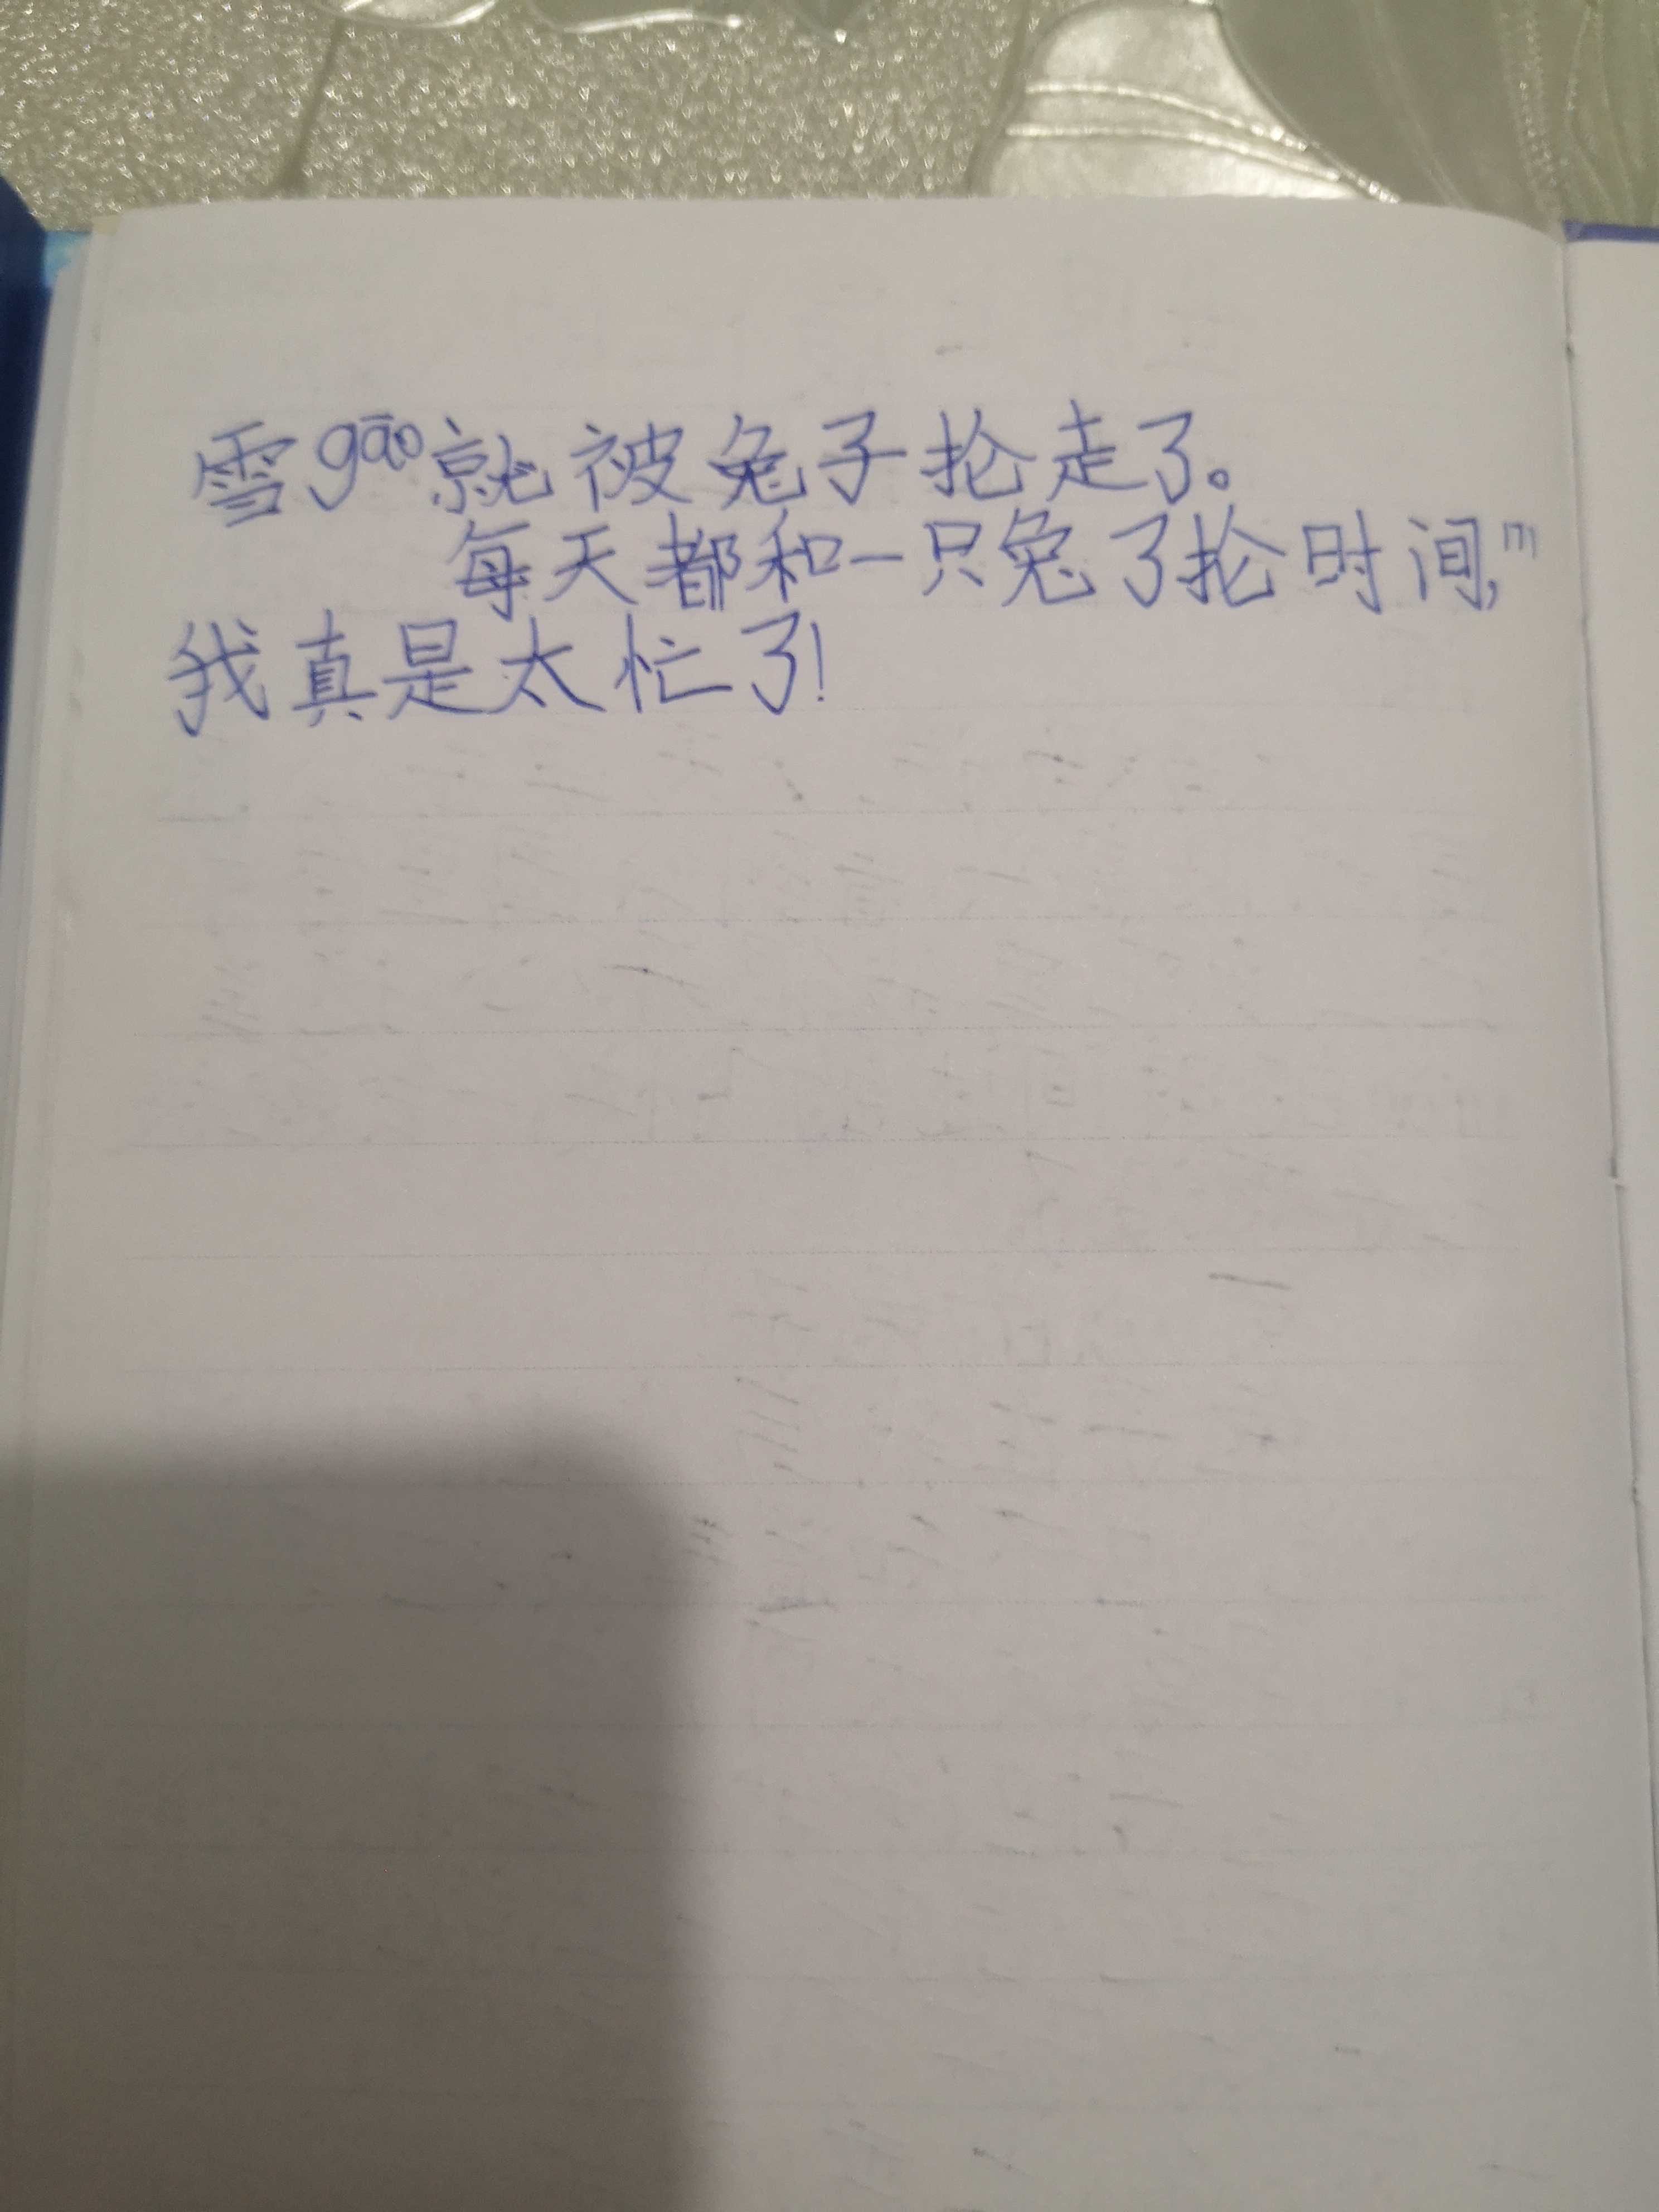 雪gāo就被兔子抡走了。
每天都和一只兔了抡时间,"
我真是太忙了!